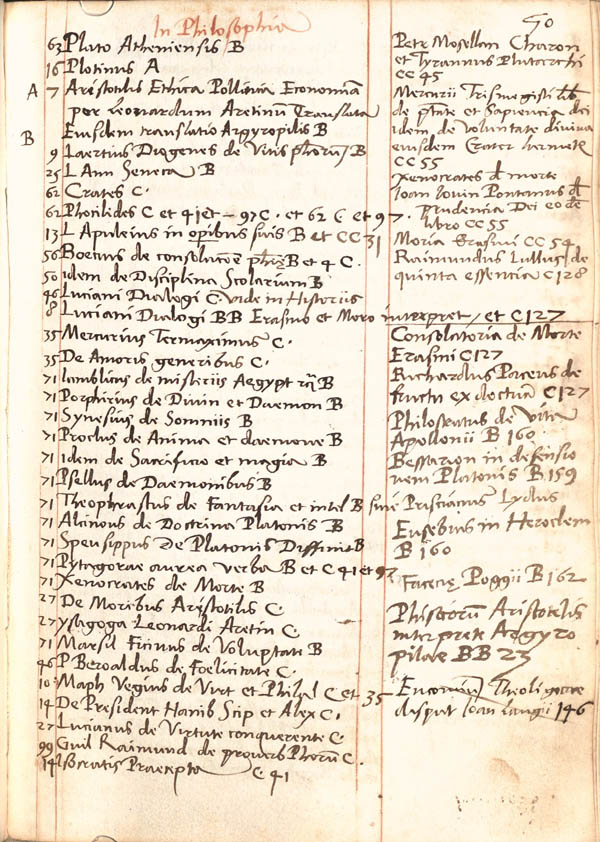 50
In Philosophia
63 Plato Atheniensis B
16 Plotinus A
A 7 Aristotelis Ethica Politica Economica
per Leonardum Aretinum Translata
B Eiusdem translatio Argyropilis B
9 Laertius Diogenes de Vitis B
25 L Ann Seneca B
62 Crates C.
62 Phocilides C et 41 et 97 C. et 62 C et 97.
13 L Apuleius in opibus suis B et CC 31
56 Boetius de consolatione B et 4 C.
50 idem de Disciplina Scolarium B
46 Luciani Dialogi C. vide in Historiis
8 Luciani Dialogi BB Erasmo et Moro interpret, et C 127
35 Mercurius Termaximus C.
35 De Amoris generibus C.
71 Iamblicus de misteriis Aegypt B
71 Porphirius de Divin et Daemon B
71 Synesius de Somniis B
71 Proclus de Anima et daemone B
71 idem de Sacrificio et magia B
71 Psellus de Daemonibus B
71 Theophrastus de Fantasia et intel B sive Priscianus Lydus
71 Alcinous de Doctrina Platonis B
71 Speusippus de Platonis Diffinit B
71 Pytagorae aurea verba B et C 41 et 97
71 Xenocrates de Morte B
27 De Moribus Aristotilis C.
27 ysagoga Leonardi Aretin C.
71 Marsil Ficinus de Voluptate B
46 P Beroaldus de Foelicitate C.
10 Maph Vegius de Virt et Philal C et 35
14 De President Hanib Scip et Alex C.
27 Lucianus de Virtute conquerente C.
99 Guil Raimund de proverb C.
14 Isocratis Praecepta C 41
Petr Mosellan Charon
et Tyrannus Plutarchi
CC 45
Mercurii Trismegisti
de et Sapiencia dei
idem de Voluntate divina
eiusdem Crater hermetis
CC 55
Xenocrates morte
Ioan Iovin Pontanus
Prudencia Dei
libro CC 55
Moria Erasmi CC 54
Raimundus Lullus de
quinta essentia C 128
Consolatoria de Morte
Erasmi C 127
Richardus Paceus de
fructu ex doctrina C 127
Philostratus de vita
Apollonii B 160
Bessarion in defensio
nem Platonis B 159
Eusebius in Heroclem
B 160
Facecię Poggii B 162
Phisicorū Aristotelis
interprete Aegyro
pilae BB 23
disput Ioan 146